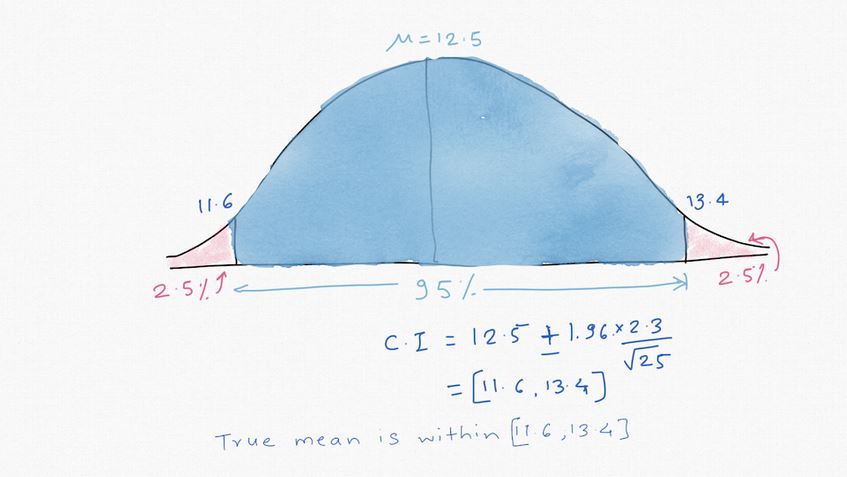 μ = 12.5
11.6
13.4
2.5%
95%
2.5%
C.I = 12.5 ± 1.96 × 2.3
√25
= [11.6, 13.4]
True mean is within [11.6, 13.4]